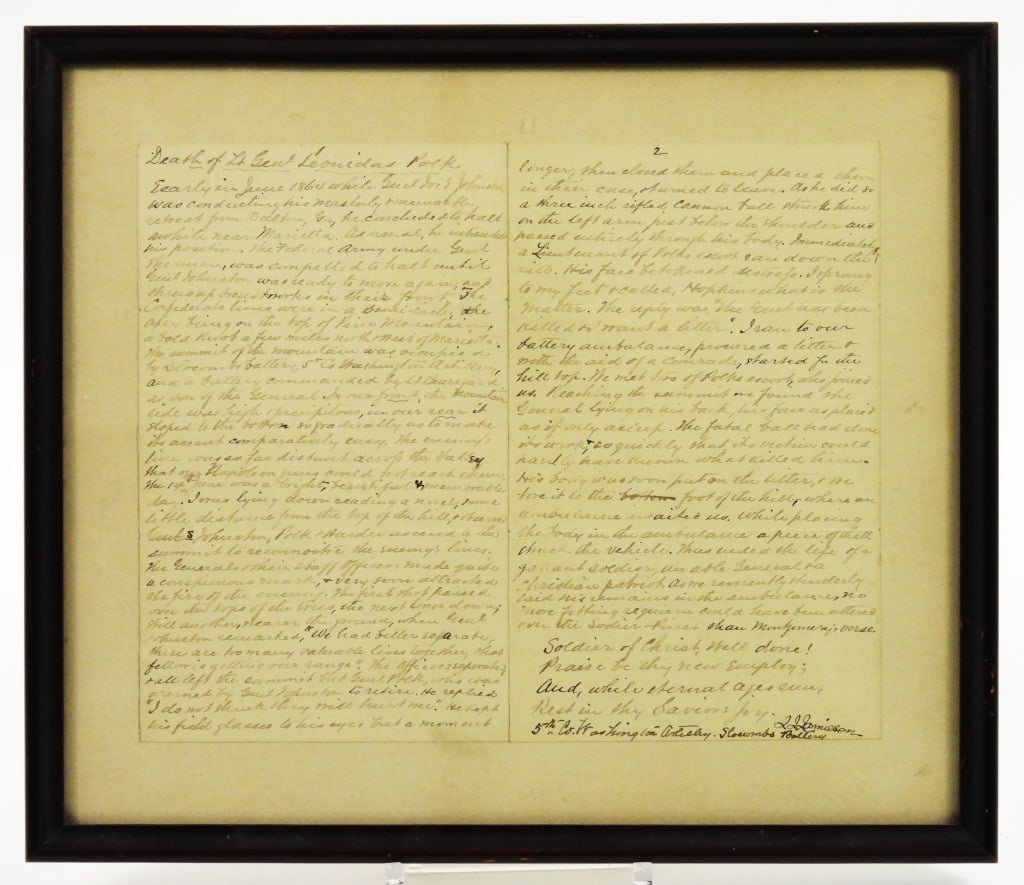 Death of Lt Genl Leonidas Polk
Eearly in June 1864 while Genl Jos E Johnston
was conducting his masterly & memorable
retreat from Dalton, Ga, he concluded to halt
awhile near Marietta. As usual, he intrenched
his position. The Federal Army under Genl
Sherman, was compelled to halt until
Genl Johnston was ready to move again, and
threw up breastworks in their front. The
Confederate lines were in a semi-circle, the
apex being on the top of Pine Mountain,
a bold knob a few miles north west of Marietta.
The summit of the mountain was occupied
by Slocomb's battery, 5th Co Washington Artillery,
and a battery commanded by Lt Beauregard
a son of the General. In our front, the mountain
side was high & precipitous, in our rear it
sloped to the bottom so gradually as to make
its ascent comparatively easy. The enemy's
line was so far distant across the Valley
that our Napoleon guns could not reach them.
The 14th June was a bright, beautiful & memorable
day. I was lying down reading a novel, some
little distance from the top of the hill, & observed
Genls Johnston, Polk & Hardee ascend to the
summit to reconnoitre the enemy's lines.
The Generals & their staff officers made quite
a conspicuous mark, & very soon attracted
the fire of the enemy. The first shot passed
over the tops of the trees, the next lower down;
still another, nearer the ground, when Genl
Johnston remarked, "We had better separate,
there are too many valuable lives together, that
fellow is getting our range". The officers separated
& all left the summit but Genl Polk, who was
warned by Genl Johnston to retire. He replied
"I do not think they will hurt me". He kept
his field glasses to his eyes but a moment
2
longer, then closed them and placed them
in their case, & turned to leave. As he did so
a three inch rifled cannon ball struck him
on the left arm just below the shoulder and
passed entirely through his body. Immediately
a Lieutenant of Polks escort ran down the
hill. His face betokened distress. I sprang
to my feet & called, Hopkins what is the
matter. The reply was, "The Genl has been
killed & I want a litter". I ran to our
battery ambulance, procured a litter &
with the aid of a comrade, started for the
hill top. We met two of Polks escort, who joined
us. Reaching the summit we found the
General lying on his back, his face as placid
as if only asleep. The fatal ball had done
its work, so quickly that its victim could
hardly have known what killed him.
His body was soon put on the litter, & we
bore it to the foot of the hill, where an
ambulance awaited us. While placing
the body in the ambulance a piece of shell
struck the vehicle. Thus ended the life of a
gallant soldier, an able General & a
Christian patriot. As we reverently & tenderly
laid his remains in the ambulance, no
more fitting requiem could have been uttered
over the Soldier-Priest than Montgomery's verse.
Soldier of Christ, Well done!
Praise be thy new Employ;
And, while eternal ages run,
Rest in thy Saviors joy.
Jamieson
5th Co. Washington Artillery. Slocumbs Battery